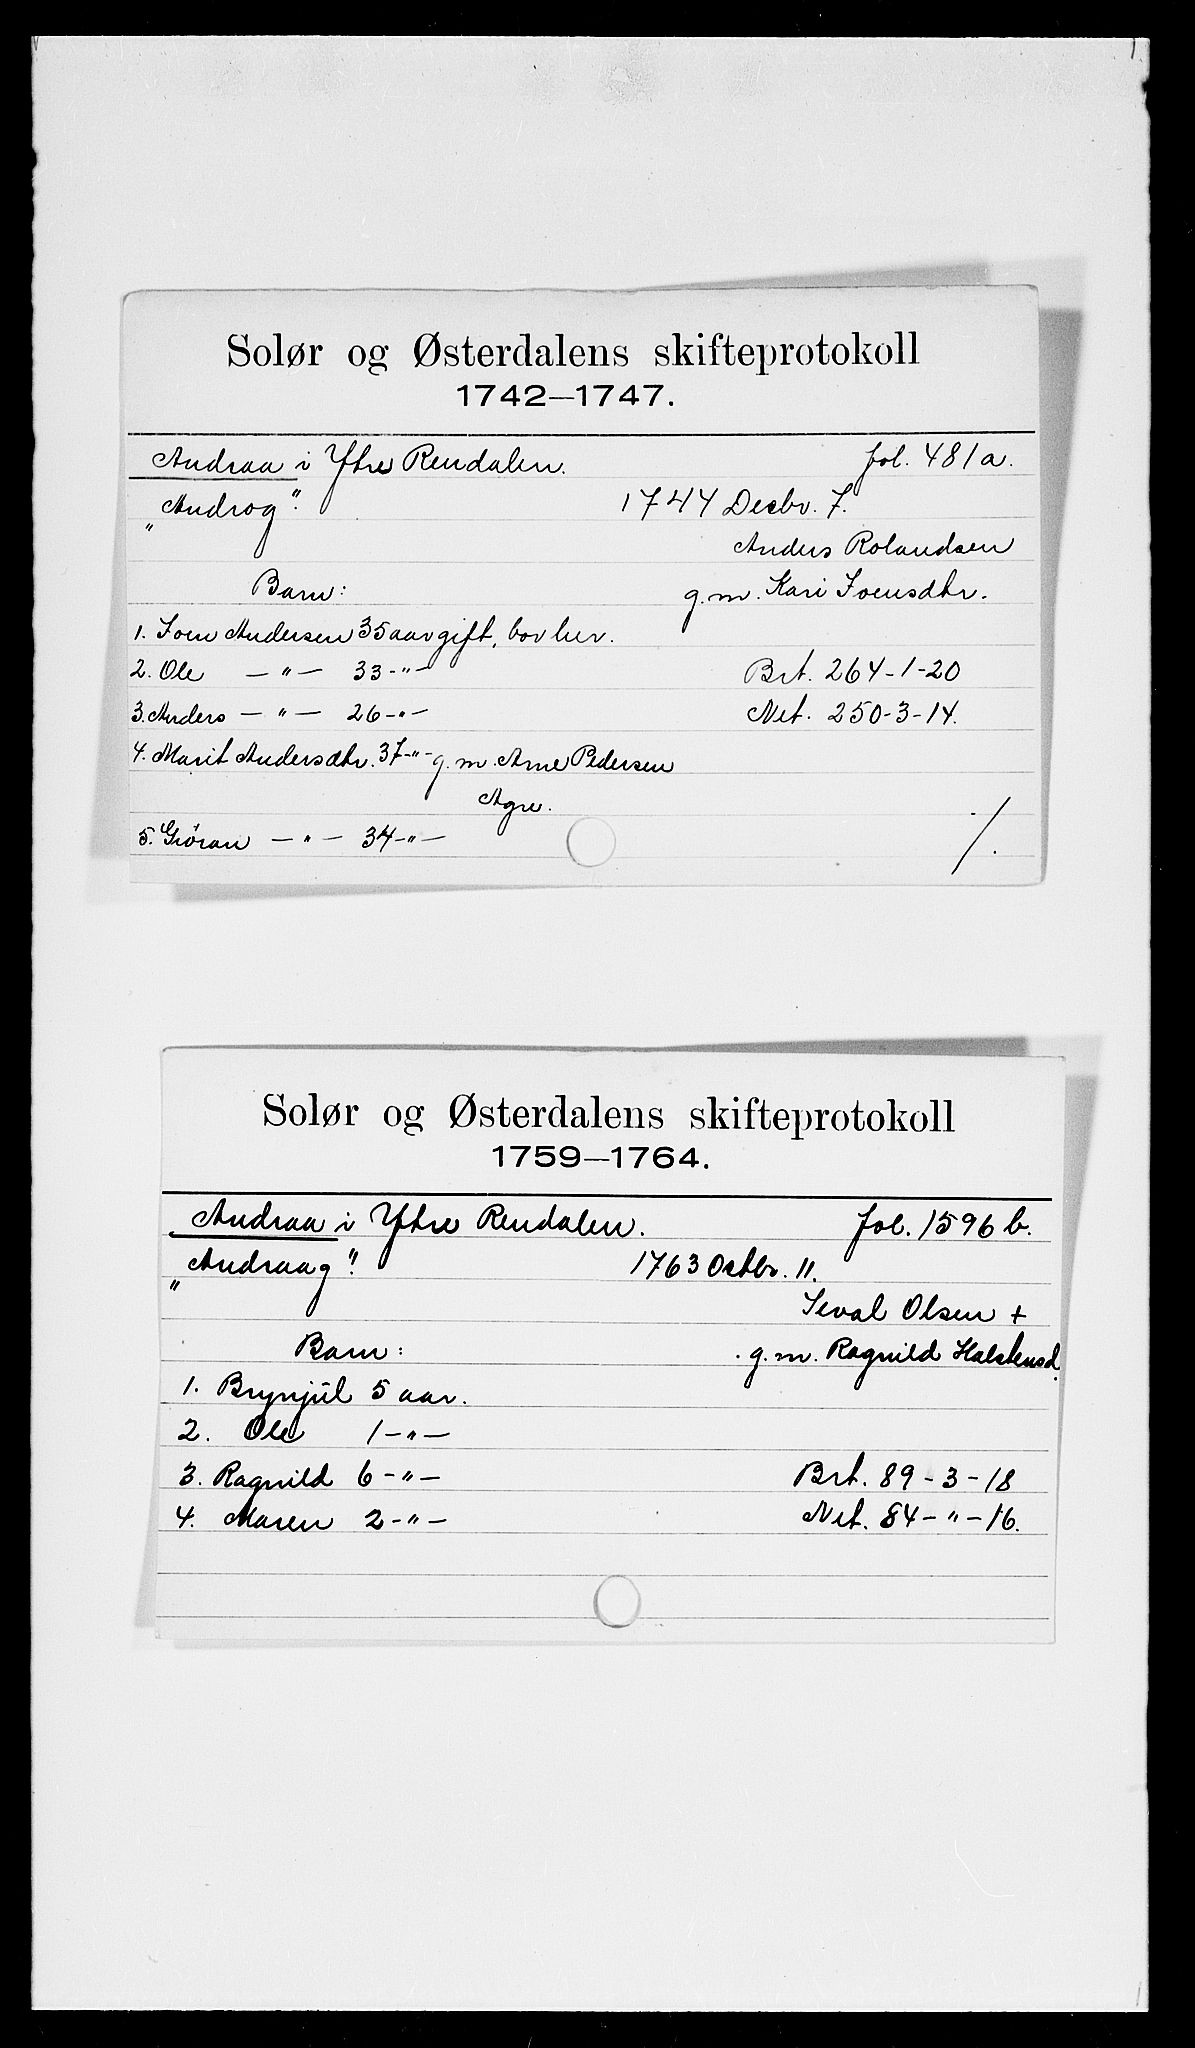 Solør og Østerdalens skifteprotokoll
1742—1747.
Andraa i Ytre Rendalen. fol. 481 a.
„Androg". 1744 Decbr. 7.
Anders Rolandsen
Barn: g. m. Kari Joensdtr.
1. Joen Andersen 35 aar gift, bor her.
2. Ole — " — 33 - " — Brt. 264-1-20
3. Anders — " — 26 - " — Net. 250-3-14.
4. Marit Andersdtr. 37 - " - g. m. Arne Pedersen
Agre.
5. Giöran — " — 34 - " — ./.
Solør og Østerdalens skifteprotokoll
1759—1764.
Andraa i Ytre Rendalen. fol. 1596 b.
„Andraag". 1763 Octbr. 11.
Seval Olsen +
Barn: g. m. Ragnild Halstensd.
1. Brynjül 5 aar.
2. Ole 1 - " —
3. Ragnild 6 - " — Brt. 89 - 3 - 18
4. Maren 2 - " — Net. 84 - " - 16.